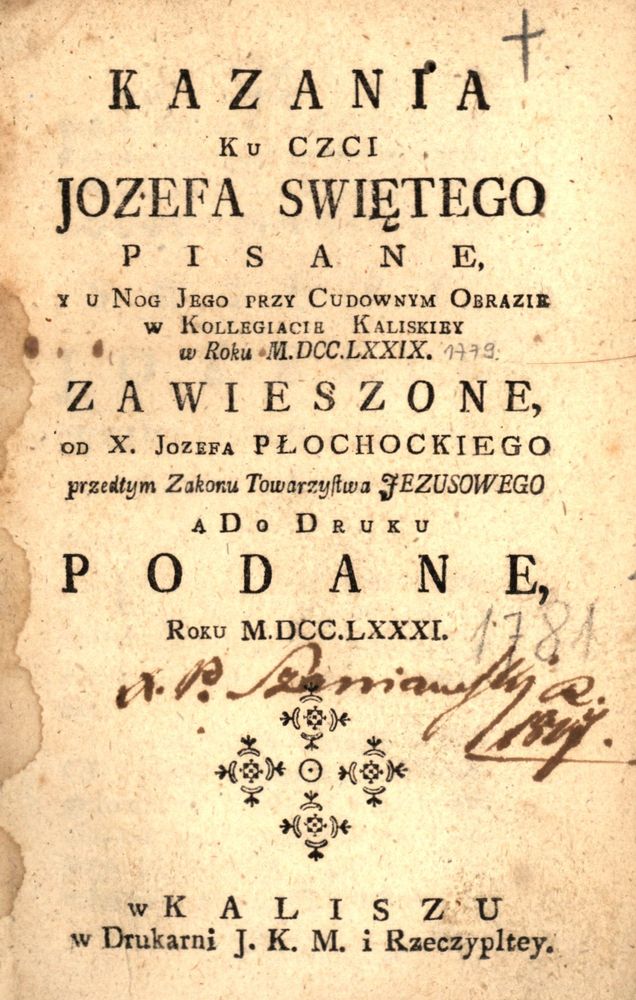 KAZANIA
KU CZCI
JOZEFA SWIĘTEGO
PISANE,
Y U NOG JEGO PRZY CUDOWNYM OBRAZIE
W KOLLEGIACIE KALISKIEY
w Roku M.DCC.LXXIX. 1779.
ZAWIESZONE,
OD X. JOZEFA PŁOCHOCKIEGO
przedtym Zakonu Towarzyſtwa JEZUSOWEGO
A DO DRUKU
PODANE,
ROKU M.DCC.LXXXI. 1781
X. P.
w KALISZU
w Drukarni J. K. M. i Rzeczypltey.